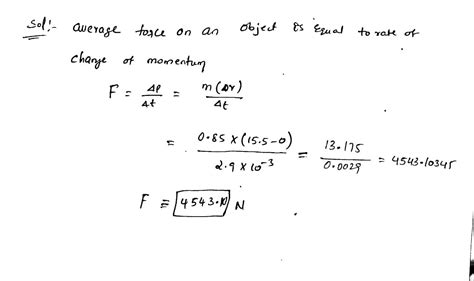 Sol:- average force on an object is equal to rate of
change of momentum
F = Δp/Δt = m(Δv)/Δt
= 0.85 × (15.5-0)/2.9 × 10^-3 = 13.175/0.0029 = 4543.10345
F = 4543.10 N